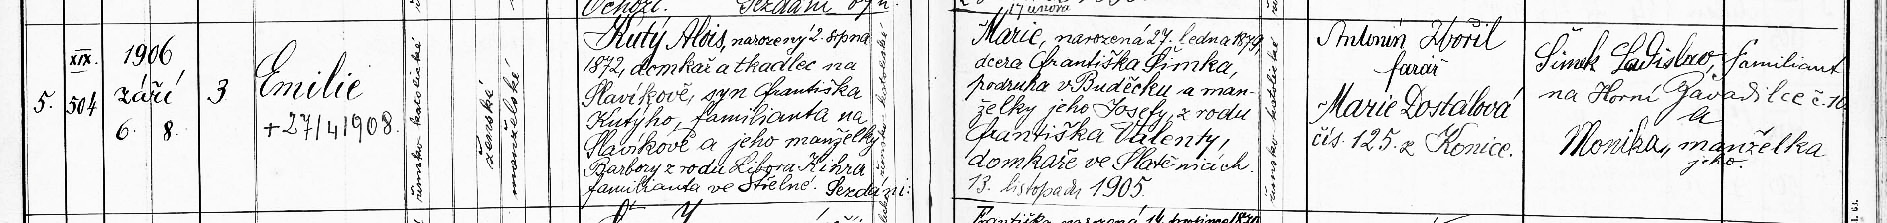 17 února
5.
XIX.
504
1906
září
6. 8.
3
Emilie
+ 27/4 1908.
římsko katolické
ženské
manželské
Kutý Alois, narozený 2. srpna
1872, domkař a tkadlec na
Slavíkově, syn Františka
Kutýho, familianta na
Slavíkově a jeho manželky
Barbory z rodu Libora Kihra
familianta ve Střelné. Sezdáni:
římsko katolické
Marie, narozená 27. ledna 1879,
dcera Františka Šimka,
podruha v Buděcku a man-
želky jeho Josefy, z rodu
Františka Valenty,
domkaře ve Slatěnicích.
13. listopadu 1905
římsko katolické
Antonín Zbořil
farář
Marie Dostálová
čís. 125. z Konice.
Šimek Ladislav, familiant
na Horní Závadilce č. 10
a
Monika, manželka
jeho.